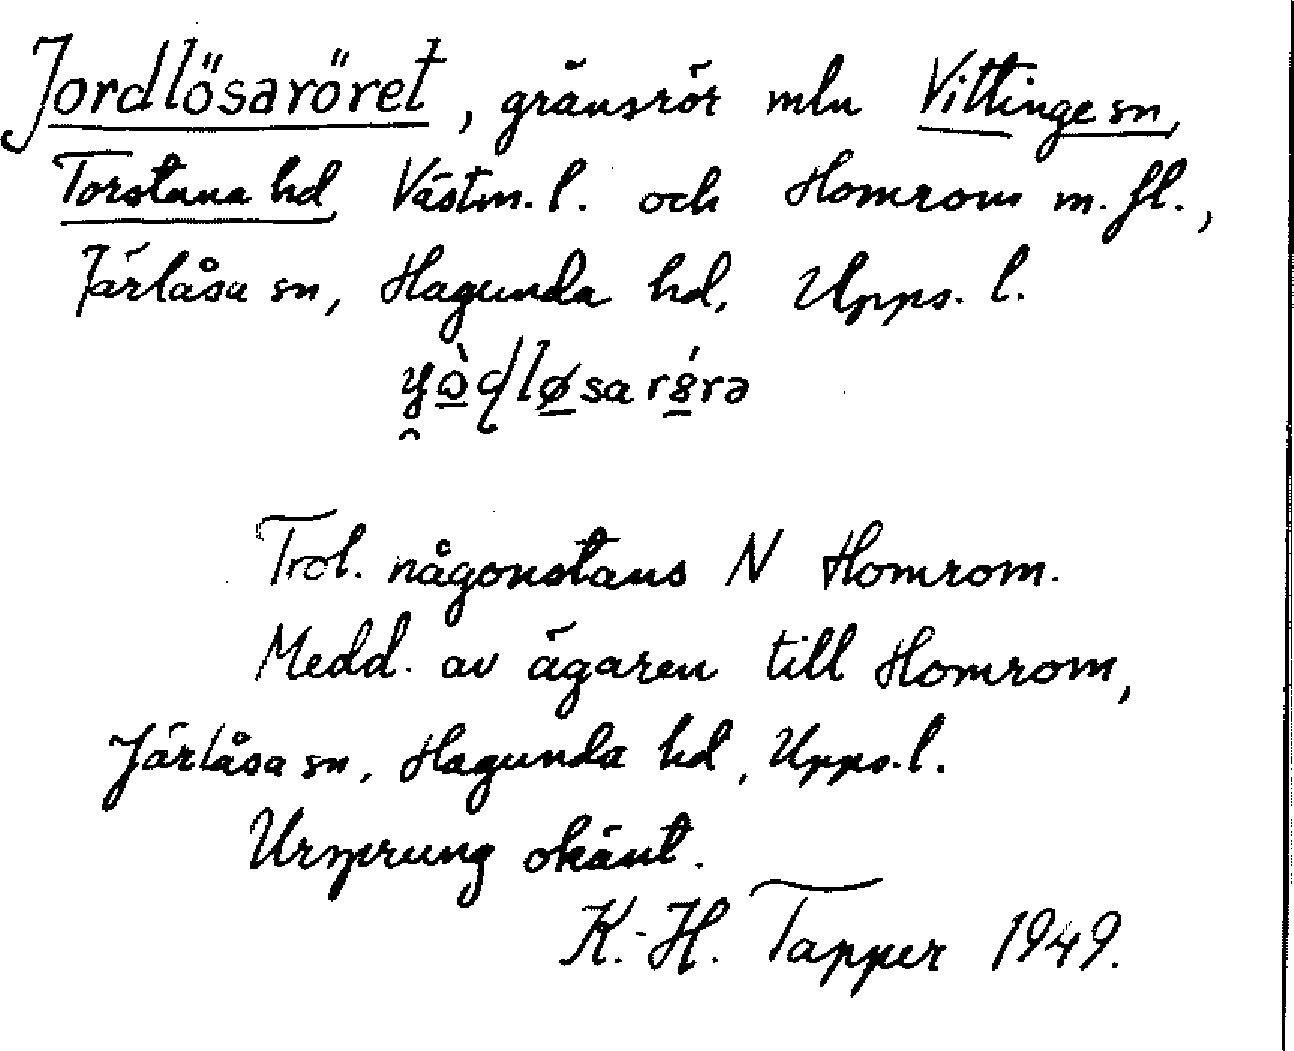 Jordlösaröret, gränsrör mln Vittinge sn,
Torstuna hd, Västm. l. och Homrom m. fl.,
Järlåsa sn, Hagunda hd, Upps. l.
Trol. någonstans N Homrom.
Medd. av ägaren till Homrom,
Järlåsa sn, Hagunda hd, Upps. l.
Ursprung okänt.
K.-H. Tapper 1949.